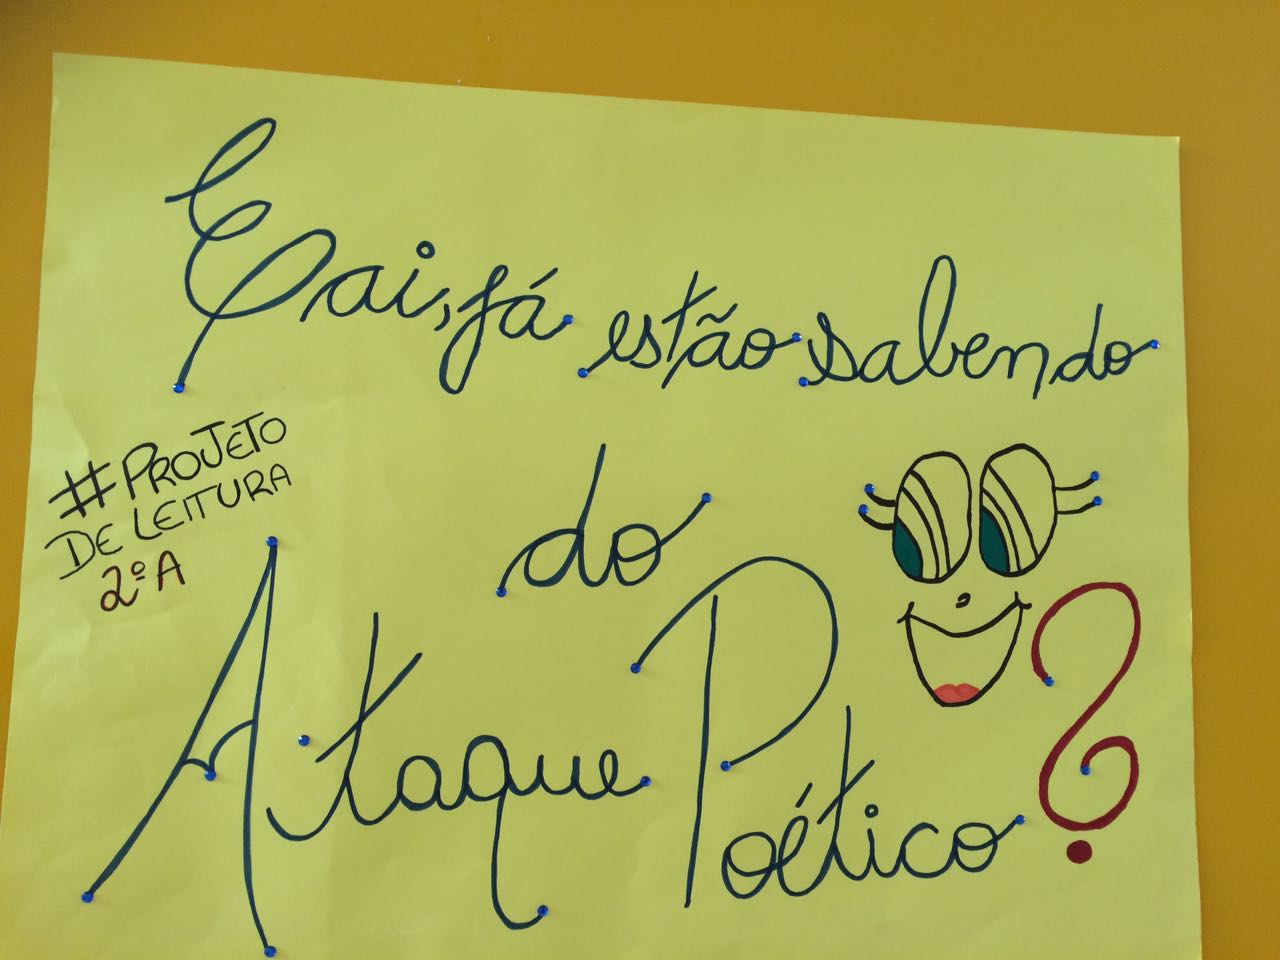 Eai, já estão sabendo
#PROJETO
DE LEITURA
2º A
do
Ataque Poético?